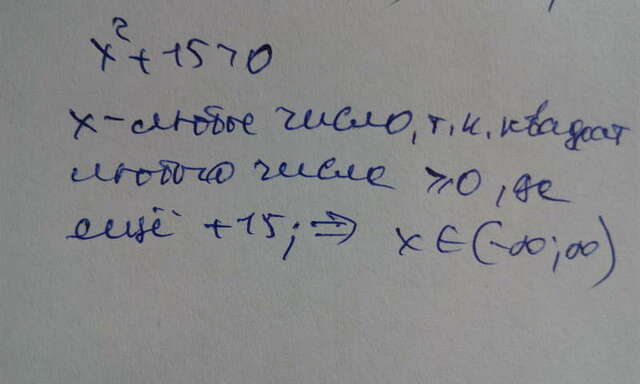 x² + 15 > 0
x - любое число, т.к. квадрат
любого числа ≥ 0, да
ещё +15; ⇒ x ∈ (-∞; ∞)